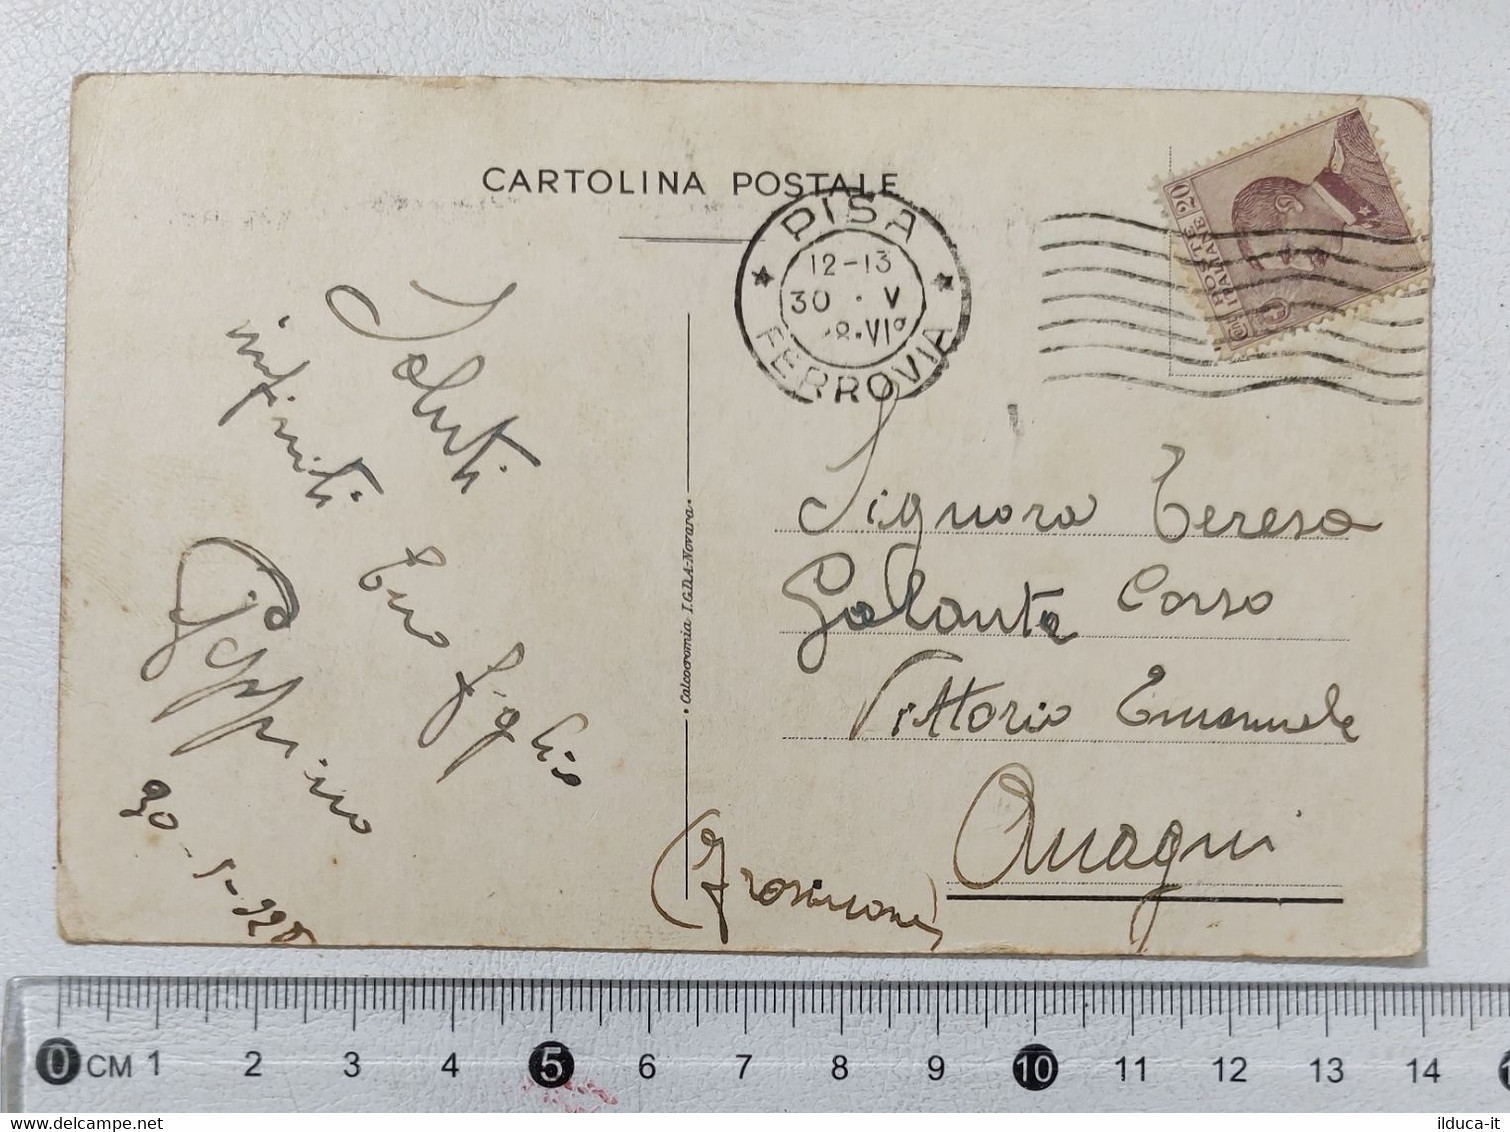 CARTOLINA POSTALE
PISA
12-13
30 · V
28·VIº
FERROVIA
20
POSTE
ITALIANE
Cent
Saluti
infiniti
tuo figlio
Peppino
30-5-928
Calcocromia I.G.D.A.-Novara.
Signora Teresa
Galante Corso
Vittorio Emanuele
Anagni
(Frosinone)
0 CM 1 2 3 4 5 6 7 8 9 10 11 12 13 14
ilduca-it